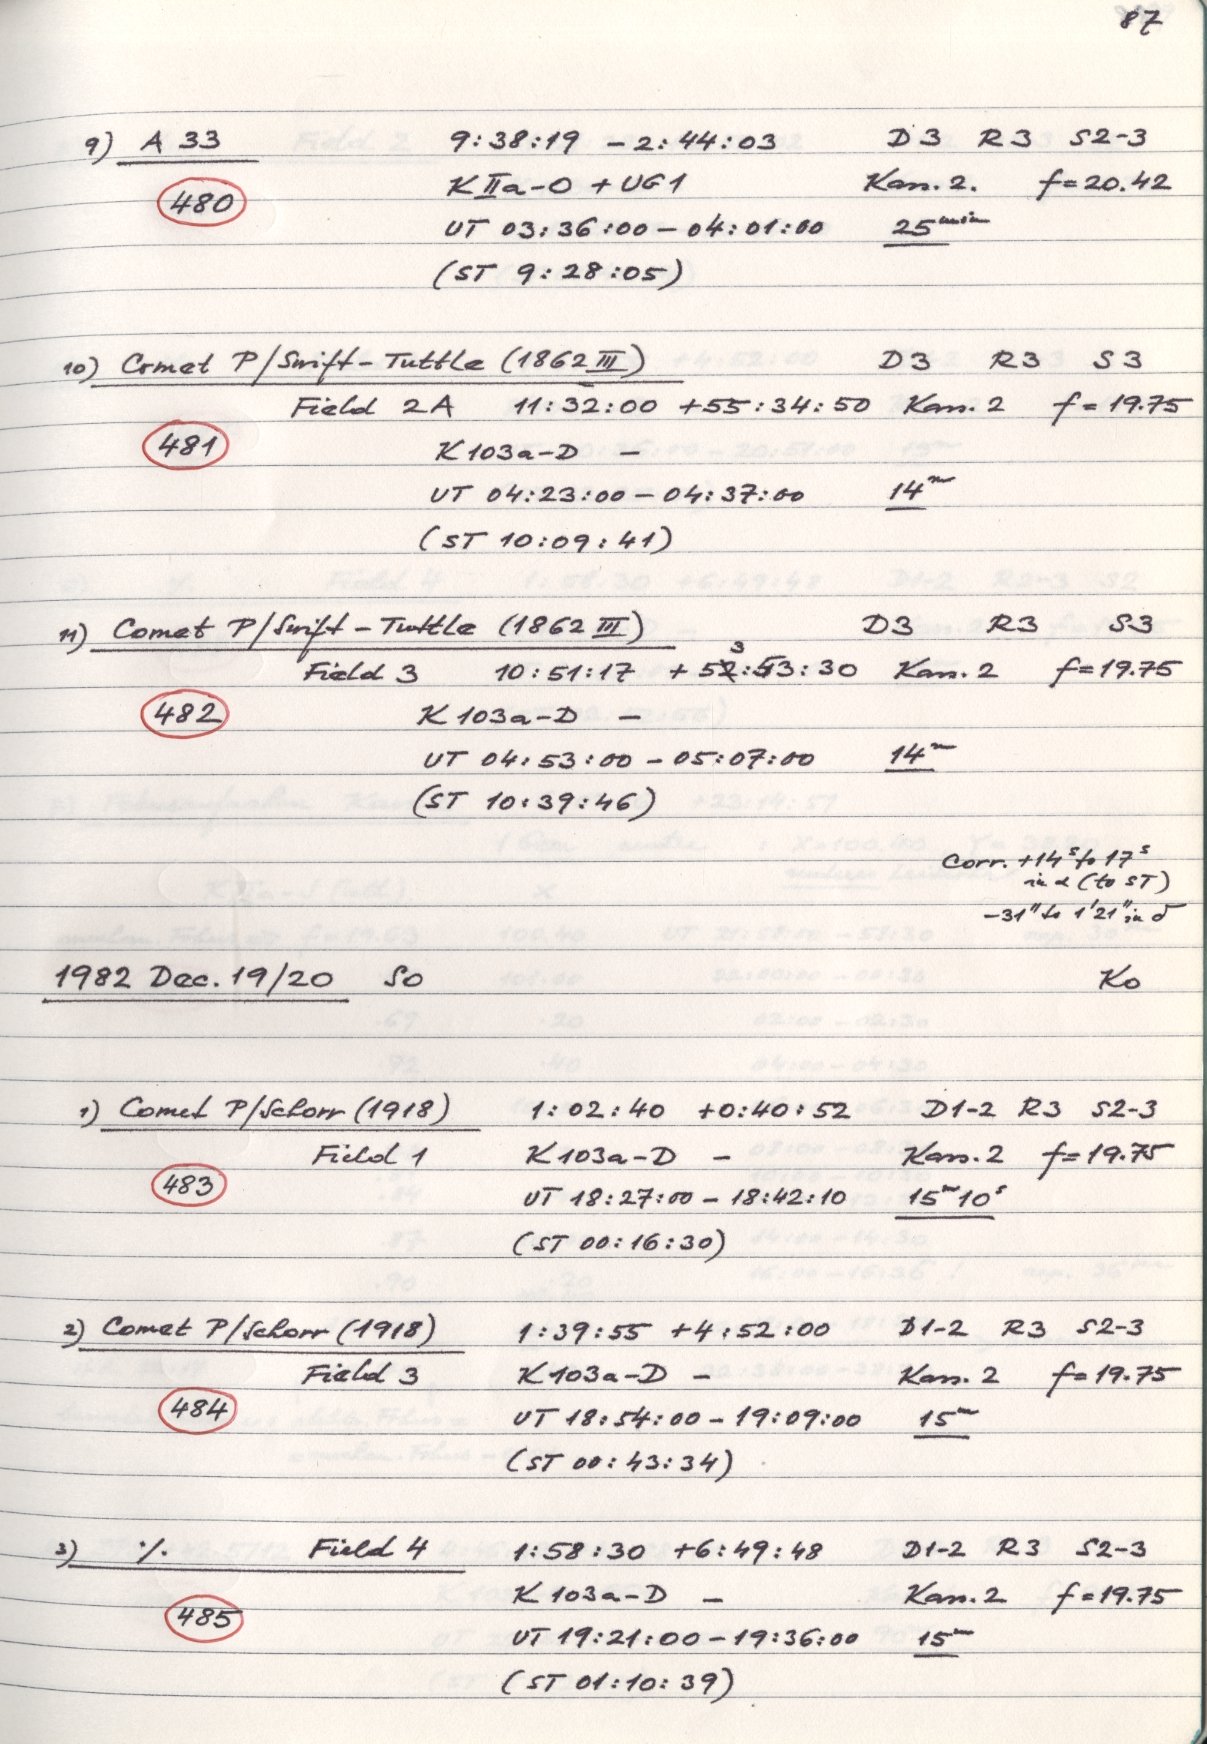 87
9) A 33 9:38:19 -2:44:03 D3 R3 S2-3
480 K IIa-O + UG1 Kan. 2. f=20.42
UT 03:36:00 - 04:01:00 25 min
(ST 9:28:05)
10) Comet P/Swift-Tuttle (1862 III) D3 R3 S3
Field 2A 11:32:00 +55:34:50 Kan. 2 f=19.75
481 K 103a-D -
UT 04:23:00 - 04:37:00 14m
(ST 10:09:41)
11) Comet P/Swift-Tuttle (1862 III) D3 R3 S3
Field 3 10:51:17 +53:53:30 Kan. 2 f=19.75
482 K 103a-D -
UT 04:53:00 - 05:07:00 14m
(ST 10:39:46)
Corr. +14s to 17s
in α (to ST)
-31" to 1'21" in δ
1982 Dec. 19/20 So Ko
1) Comet P/Schorr (1918) 1:02:40 +0:40:52 D1-2 R3 S2-3
Field 1 K 103a-D - Kan. 2 f=19.75
483 UT 18:27:00 - 18:42:10 15m10s
(ST 00:16:30)
2) Comet P/Schorr (1918) 1:39:55 +4:52:00 D1-2 R3 S2-3
Field 3 K 103a-D - Kan. 2 f=19.75
484 UT 18:54:00 - 19:09:00 15m
(ST 00:43:34)
3) ·/. Field 4 1:58:30 +6:49:48 D1-2 R3 S2-3
485 K 103a-D - Kan. 2 f=19.75
UT 19:21:00 - 19:36:00 15m
(ST 01:10:39)